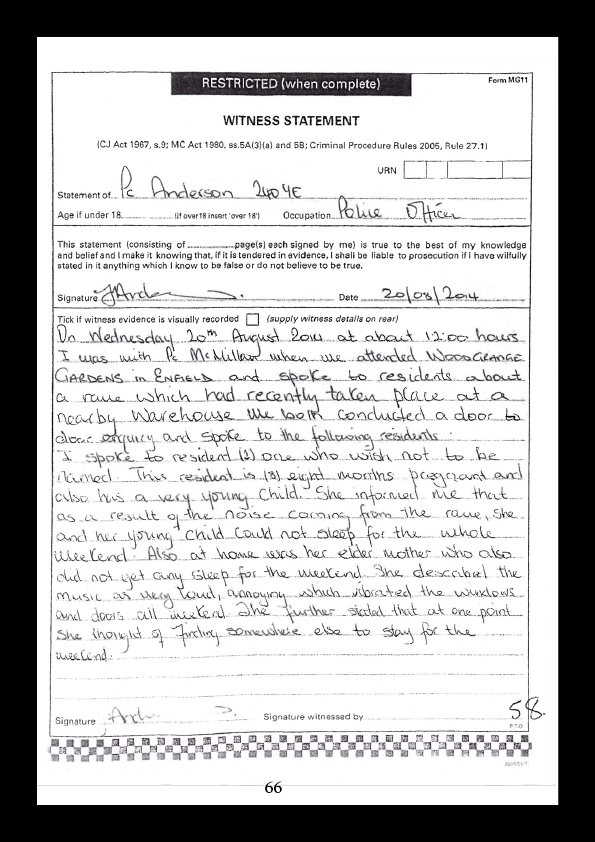 RESTRICTED (when complete)
Form MG11
WITNESS STATEMENT
(CJ Act 1967, s.9; MC Act 1980, ss.5A(3)(a) and 5B; Criminal Procedure Rules 2005, Rule 27.1)
URN
Statement of Pc Anderson 240YE
Age if under 18 (if over 18 insert 'over 18') Occupation Police Officer
This statement (consisting of page(s) each signed by me) is true to the best of my knowledge
and belief and I make it knowing that, if it is tendered in evidence, I shall be liable to prosecution if I have wilfully
stated in it anything which I know to be false or do not believe to be true.
Signature Date 20/08/2014
Tick if witness evidence is visually recorded (supply witness details on rear)
On Wednesday 20th August 2014 at about 12:00 hours
I was with Pc McMillan when we attended WOODGRANGE
GARDENS in ENFIELD and spoke to residents about
a rave which had recently taken place at a
nearby Warehouse we both conducted a door to
door enquiry and spoke to the following residents.
I spoke to resident (2) one who wish not to be
named. This resident is (8) eight months pregnant and
also has a very young child. She informed me that
as a result of the noise coming from the rave, she
and her young child could not sleep for the whole
weekend. Also at home was her elder mother who also
did not get any sleep for the weekend. She described the
music as very loud, annoying which vibrated the windows
and doors all weekend. She further stated that at one point
she thought of finding somewhere else to stay for the
weekend.
Signature Signature witnessed by
58.
P.T.O
66